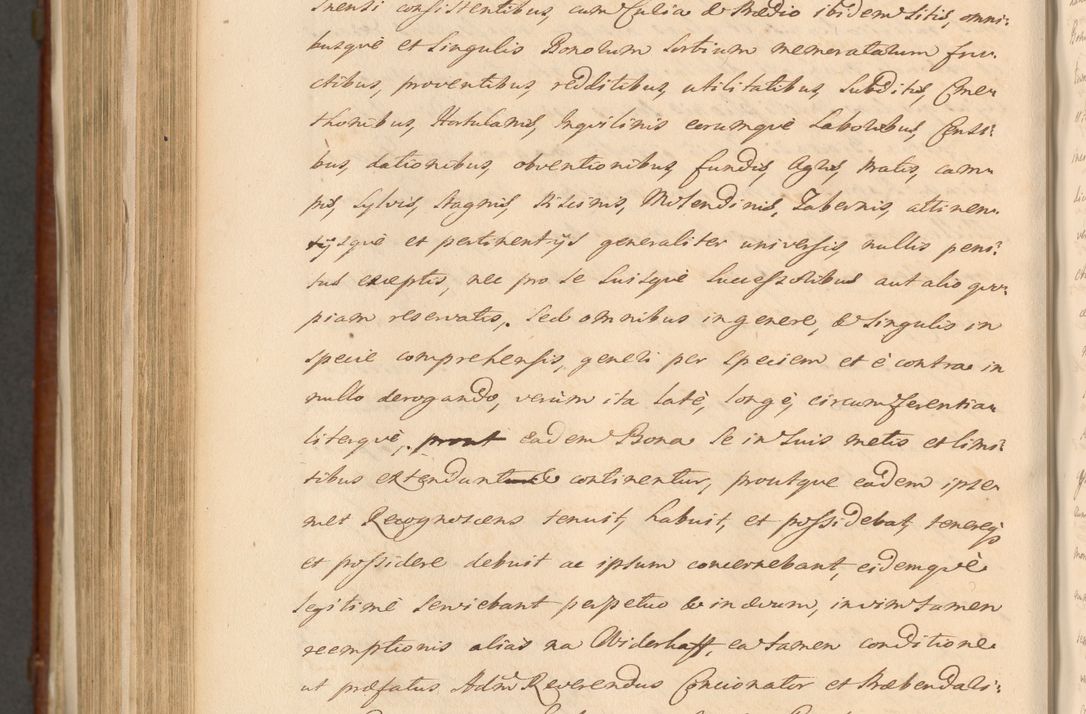 snensi consistentibus, cum Curia & Prædio ibidem sitis, omni:
busquè et singulis Bonorum sortium memoratarum fru:
ctibus, proventibus, redditibus, utilitatibus, subditis, Cme:
thonibus, Hortulanis, Inqvilinis earumquè Laboribus, Censi:
bus, dationibus, obventionibus, fundis, Agris, Pratis, cam:
pis, Sylvis, Stagnis, Piscinis, Molendinis, Tabernis, attinen:
tysquè et pertinentijs generaliter universis, nullis peni:
tus exceptis, nec pro se suisquè Successoribus aut alio quo:
piam reservatis. Sed omnibus in genere, & singulis in
specie comprehensis, generi per speciem et è contra in
nullo derogando, verùm ita latè, longè, circumferentia:
literquè, prout eadem Bona se in suis metis et limi:
tibus extendunt & continentur, proutque eadem ipse:
met Recognoscens tenuit, habuit, et possidebat, tenereqs
et possidere debuit ac ipsum concernebant, eidemquè
legitimè serviebant perpetuo & in ævum, in vim tamen
reemptionis alias na Widerkaff, ea tamen conditione
ut præfatus Adm Reverendus Concionator et Præbendari: